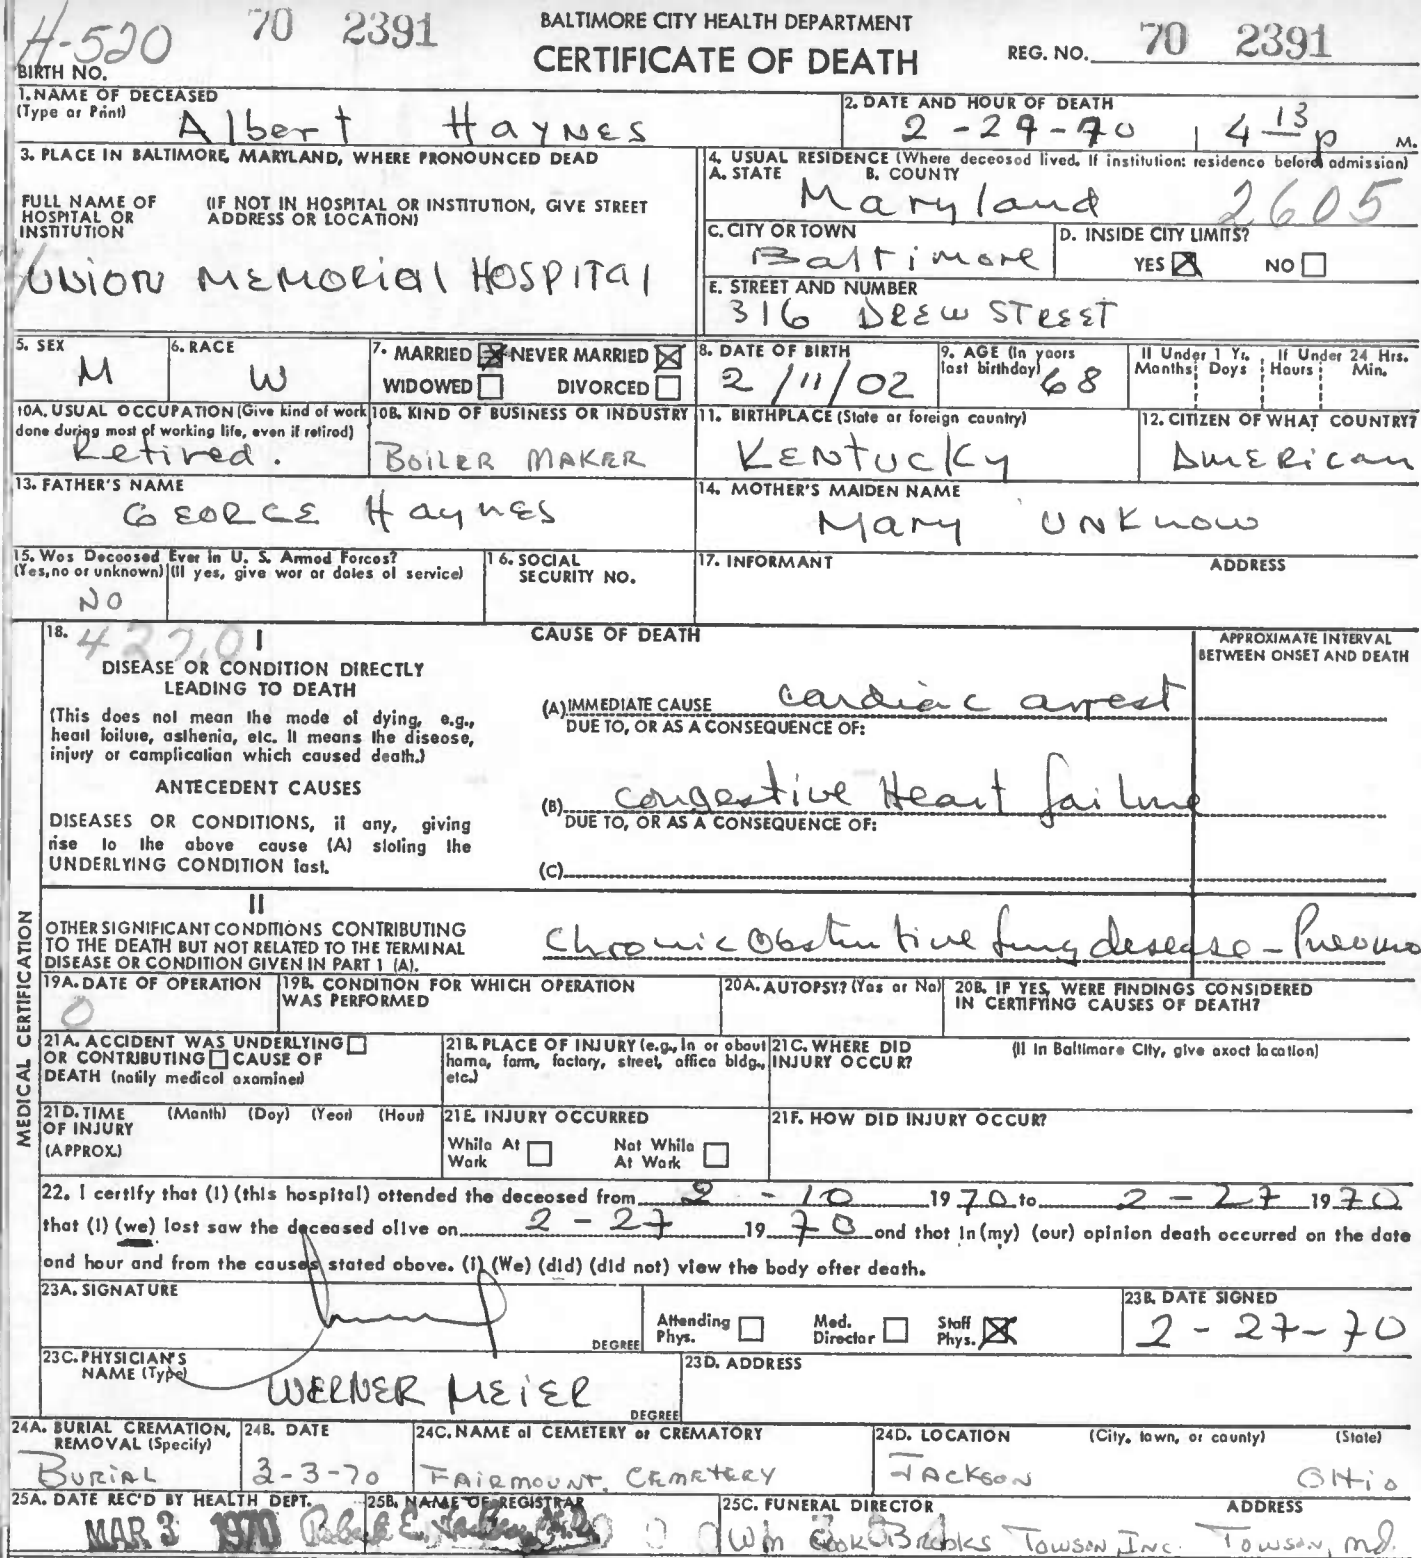 H-520 70 2391 BALTIMORE CITY HEALTH DEPARTMENT
CERTIFICATE OF DEATH REG. NO. 70 2391
BIRTH NO.
1. NAME OF DECEASED (Type or Print) Albert Haynes
2. DATE AND HOUR OF DEATH 2-27-70 4 13 P M.
3. PLACE IN BALTIMORE, MARYLAND, WHERE PRONOUNCED DEAD
FULL NAME OF HOSPITAL OR INSTITUTION (IF NOT IN HOSPITAL OR INSTITUTION, GIVE STREET ADDRESS OR LOCATION)
UNION MEMORIAL HOSPITAL
4. USUAL RESIDENCE (Where deceased lived. If institution: residence before admission)
A. STATE B. COUNTY
Maryland 2605
C. CITY OR TOWN Baltimore
D. INSIDE CITY LIMITS? YES NO
E. STREET AND NUMBER
316 DREW STREET
5. SEX M
6. RACE W
7. MARRIED NEVER MARRIED WIDOWED DIVORCED
8. DATE OF BIRTH 2/11/02
9. AGE (In years last birthday) 68
If Under 1 Yr. Months Days If Under 24 Hrs. Hours Min.
10A. USUAL OCCUPATION (Give kind of work done during most of working life, even if retired) Retired.
10B. KIND OF BUSINESS OR INDUSTRY BOILER MAKER
11. BIRTHPLACE (State or foreign country) KENTUCKY
12. CITIZEN OF WHAT COUNTRY? AMERICAN
13. FATHER'S NAME GEORGE Haynes
14. MOTHER'S MAIDEN NAME Mary UNKNOW
15. Was Deceased Ever in U. S. Armed Forces? (Yes, no or unknown) (If yes, give war or dates of service) NO
16. SOCIAL SECURITY NO.
17. INFORMANT ADDRESS
MEDICAL CERTIFICATION
18. 427.0 I CAUSE OF DEATH APPROXIMATE INTERVAL BETWEEN ONSET AND DEATH
DISEASE OR CONDITION DIRECTLY LEADING TO DEATH
(This does not mean the mode of dying, e.g., heart failure, asthenia, etc. It means the disease, injury or complication which caused death.)
(A) IMMEDIATE CAUSE cardiac arrest
DUE TO, OR AS A CONSEQUENCE OF:
ANTECEDENT CAUSES
DISEASES OR CONDITIONS, if any, giving rise to the above cause (A) stating the UNDERLYING CONDITION last.
(B) congestive Heart failure
DUE TO, OR AS A CONSEQUENCE OF:
(C)
II
OTHER SIGNIFICANT CONDITIONS CONTRIBUTING TO THE DEATH BUT NOT RELATED TO THE TERMINAL DISEASE OR CONDITION GIVEN IN PART 1 (A).
Chronic Obstructive lung desease - Pneumo
19A. DATE OF OPERATION 0
19B. CONDITION FOR WHICH OPERATION WAS PERFORMED
20A. AUTOPSY? (Yes or No)
20B. IF YES, WERE FINDINGS CONSIDERED IN CERTIFYING CAUSES OF DEATH?
21A. ACCIDENT WAS UNDERLYING OR CONTRIBUTING CAUSE OF DEATH (notify medical examiner)
21B. PLACE OF INJURY (e.g., in or about home, farm, factory, street, office bldg., etc.)
21C. WHERE DID INJURY OCCUR? (If in Baltimore City, give exact location)
21D. TIME OF INJURY (APPROX.) (Month) (Day) (Year) (Hour)
21E. INJURY OCCURRED While At Work Not While At Work
21F. HOW DID INJURY OCCUR?
22. I certify that (I) (this hospital) attended the deceased from 2-10 1970 to 2-27 1970
that (I) (we) last saw the deceased alive on 2-27 1970 and that in (my) (our) opinion death occurred on the date
and hour and from the causes stated above. (I) (We) (did) (did not) view the body after death.
23A. SIGNATURE DEGREE
Attending Phys. Med. Director Staff Phys.
23B. DATE SIGNED 2-27-70
23C. PHYSICIAN'S NAME (Type) WERNER MEIER DEGREE
23D. ADDRESS
24A. BURIAL CREMATION, REMOVAL (Specify) BURIAL
24B. DATE 3-3-70
24C. NAME of CEMETERY or CREMATORY FAIRMOUNT CEMETERY
24D. LOCATION (City, town, or county) (State) JACKSON OHIO
25A. DATE REC'D BY HEALTH DEPT. MAR 3 1970
25B. NAME OF REGISTRAR Robert E.
25C. FUNERAL DIRECTOR ADDRESS
Wm Cook Brooks Towson, Inc. Towson, Md.